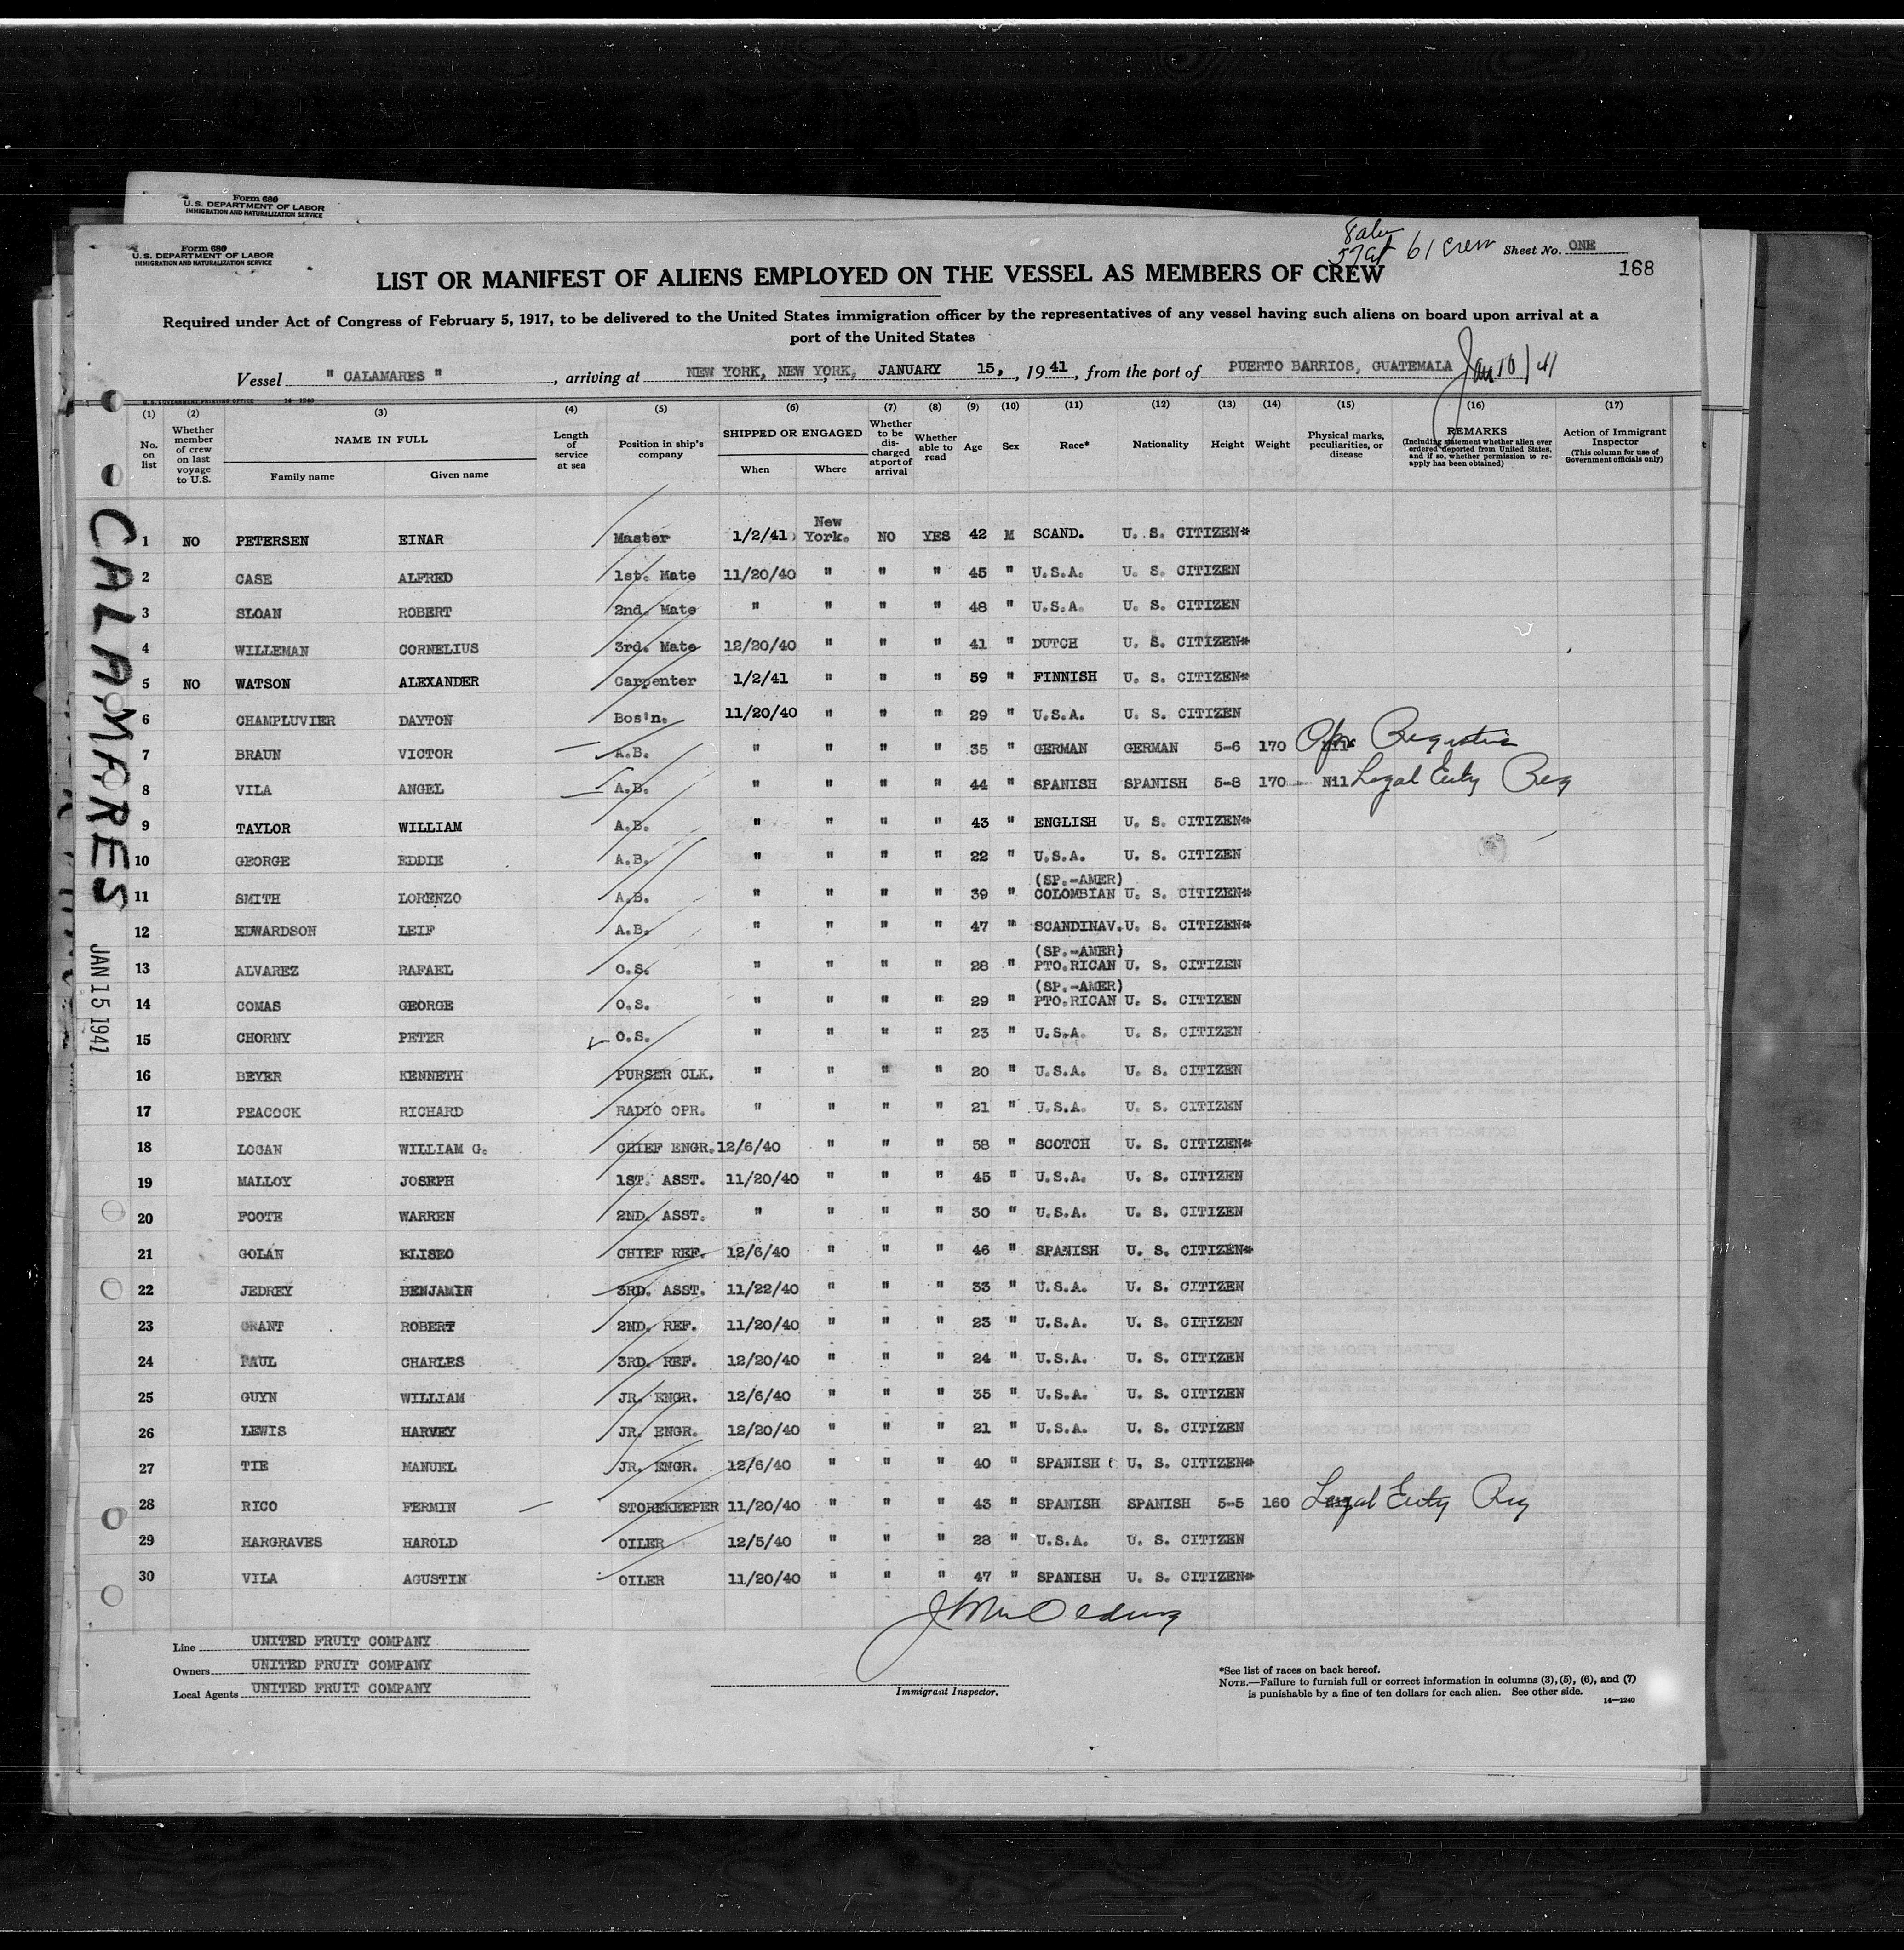 Form 680
U.S. DEPARTMENT OF LABOR
IMMIGRATION AND NATURALIZATION SERVICE
Form 680
U.S. DEPARTMENT OF LABOR
IMMIGRATION AND NATURALIZATION SERVICE
61 crew Sheet No. ONE
168
LIST OR MANIFEST OF ALIENS EMPLOYED ON THE VESSEL AS MEMBERS OF CREW
Required under Act of Congress of February 5, 1917, to be delivered to the United States immigration officer by the representatives of any vessel having such aliens on board upon arrival at a
port of the United States
Vessel " CALAMARES ", arriving at NEW YORK, NEW YORK, JANUARY 15, 1941, from the port of PUERTO BARRIOS, GUATEMALA Jan 10/41
(1) (2) (3) (4) (5) (6) (7) (8) (9) (10) (11) (12) (13) (14) (15) (16) (17)
No. on list
Whether member of crew on last voyage to U.S.
NAME IN FULL
Family name Given name
Length of service at sea
Position in ship's company
SHIPPED OR ENGAGED
When Where
Whether to be discharged at port of arrival
Whether able to read
Age Sex Race* Nationality Height Weight
Physical marks, peculiarities, or disease
REMARKS
(Including statement whether alien ever ordered deported from United States, and if so, whether permission to reapply has been obtained)
Action of Immigrant Inspector
(This column for use of Government officials only)
1 NO PETERSEN EINAR Master 1/2/41 New York. NO YES 42 M SCAND. U. S. CITIZEN*
2 CASE ALFRED 1st. Mate 11/20/40 " " " 45 " U.S.A. U. S. CITIZEN
3 SLOAN ROBERT 2nd. Mate " " " " 48 " U.S.A. U. S. CITIZEN
4 WILLEMAN CORNELIUS 3rd. Mate 12/20/40 " " " 41 " DUTCH U. S. CITIZEN*
5 NO WATSON ALEXANDER Carpenter 1/2/41 " " " 59 " FINNISH U. S. CITIZEN*
6 CHAMPLUVIER DAYTON Bos'n. 11/20/40 " " " 29 " U.S.A. U. S. CITIZEN
7 BRAUN VICTOR A.B. " " " " 35 " GERMAN GERMAN 5-6 170
8 VILA ANGEL A.B. " " " " 44 " SPANISH SPANISH 5-8 170 Nil Legal Entry Reg
9 TAYLOR WILLIAM A.B. " " " " 43 " ENGLISH U. S. CITIZEN*
10 GEORGE EDDIE A.B. " " " " 22 " U.S.A. U. S. CITIZEN
11 SMITH LORENZO A.B. " " " " 39 " (SP.-AMER) COLOMBIAN U. S. CITIZEN*
12 EDWARDSON LEIF A.B. " " " " 47 " SCANDINAV. U. S. CITIZEN*
13 ALVAREZ RAFAEL O.S. " " " " 28 " (SP.-AMER) PTO.RICAN U. S. CITIZEN
14 COMAS GEORGE O.S. " " " " 29 " (SP.-AMER) PTO.RICAN U. S. CITIZEN
15 CHORNY PETER O.S. " " " " 23 " U.S.A. U. S. CITIZEN
16 BEYER KENNETH PURSER CLK. " " " " 20 " U.S.A. U. S. CITIZEN
17 PEACOCK RICHARD RADIO OPR. " " " " 21 " U.S.A. U. S. CITIZEN
18 LOGAN WILLIAM G. CHIEF ENGR. 12/6/40 " " " 58 " SCOTCH U. S. CITIZEN*
19 MALLOY JOSEPH 1ST. ASST. 11/20/40 " " " 45 " U.S.A. U. S. CITIZEN
20 FOOTE WARREN 2ND. ASST. " " " " 30 " U.S.A. U. S. CITIZEN
21 GOLAN ELISEO CHIEF REF. 12/6/40 " " " 46 " SPANISH U. S. CITIZEN*
22 JEDREY BENJAMIN 3RD. ASST. 11/22/40 " " " 33 " U.S.A. U. S. CITIZEN
23 GRANT ROBERT 2ND. REF. 11/20/40 " " " 23 " U.S.A. U. S. CITIZEN
24 PAUL CHARLES 3RD. REF. 12/20/40 " " " 24 " U.S.A. U. S. CITIZEN
25 GUYN WILLIAM JR. ENGR. 12/6/40 " " " 35 " U.S.A. U. S. CITIZEN
26 LEWIS HARVEY JR. ENGR. 12/20/40 " " " 21 " U.S.A. U. S. CITIZEN
27 TIE MANUEL JR. ENGR. 12/6/40 " " " 40 " SPANISH U. S. CITIZEN*
28 RICO FERMIN STOREKEEPER 11/20/40 " " " 43 " SPANISH SPANISH 5-5 160 Legal Entry Reg
29 HARGRAVES HAROLD OILER 12/5/40 " " " 28 " U.S.A. U. S. CITIZEN
30 VILA AGUSTIN OILER 11/20/40 " " " 47 " SPANISH U. S. CITIZEN*
CALAMARES JAN 15 1941
Line UNITED FRUIT COMPANY
Owners UNITED FRUIT COMPANY
Local Agents UNITED FRUIT COMPANY
Immigrant Inspector.
*See list of races on back hereof.
NOTE.—Failure to furnish full or correct information in columns (3), (5), (6), and (7)
is punishable by a fine of ten dollars for each alien. See other side.
14—1240